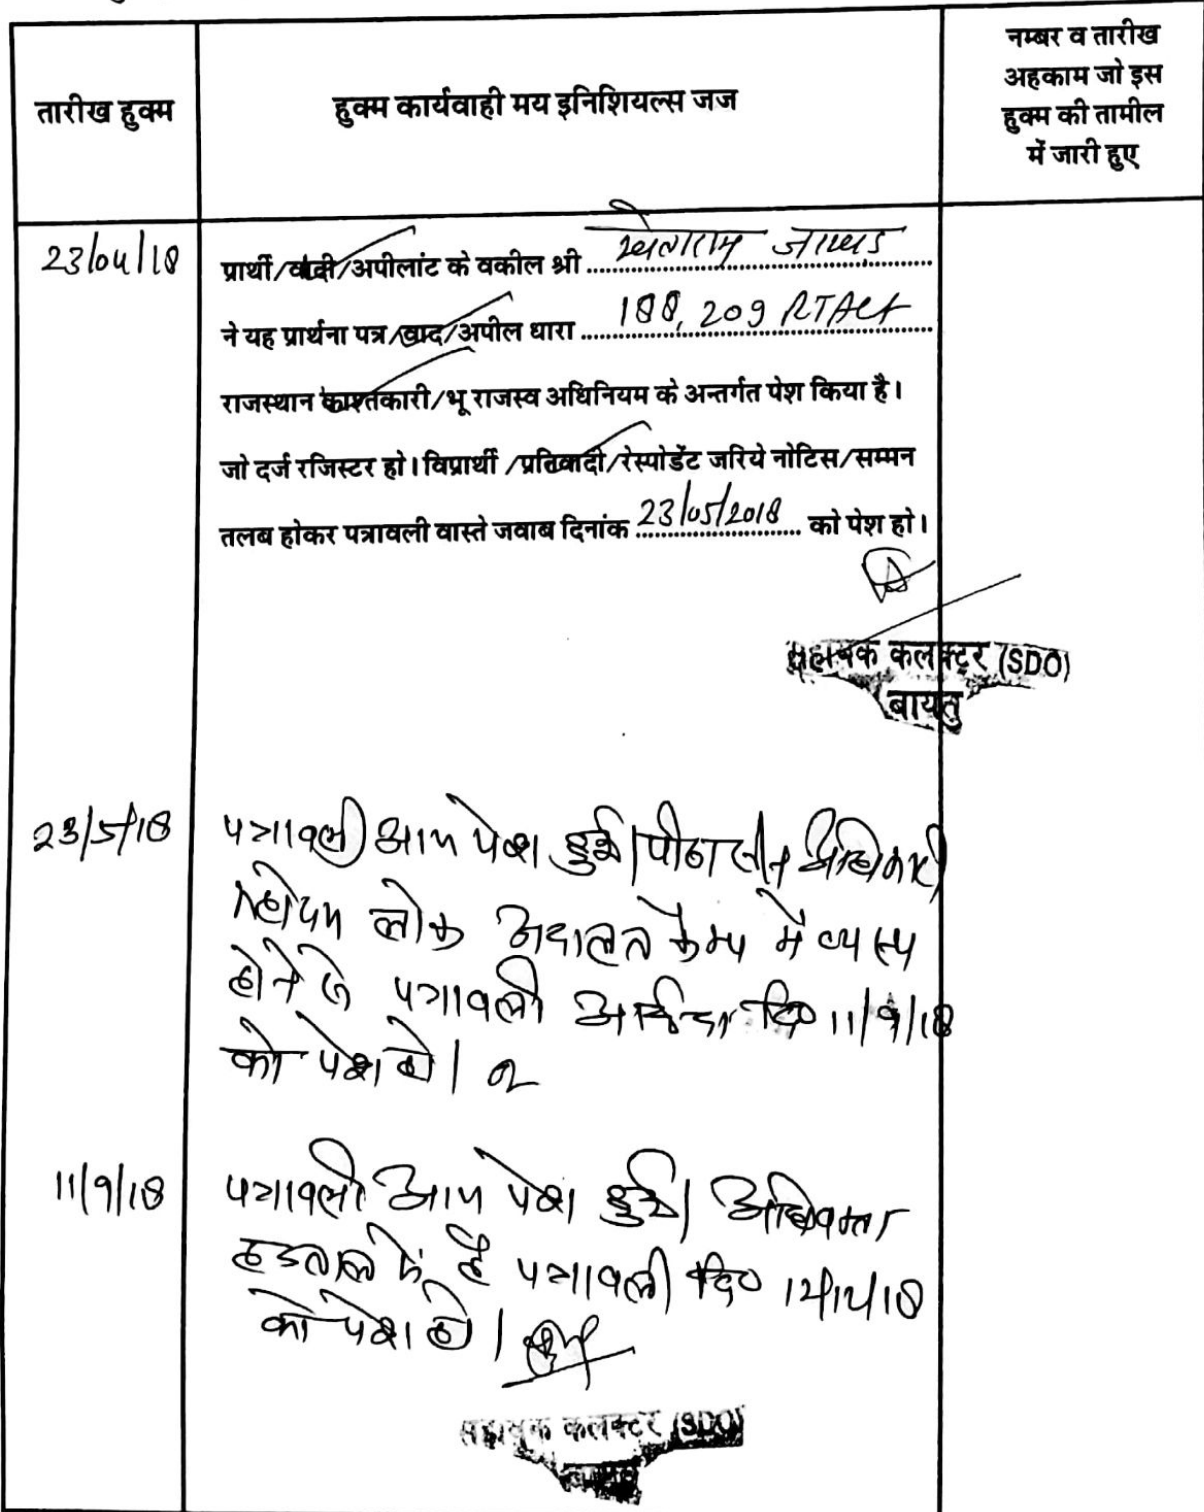 तारीख हुक्म
हुक्म कार्यवाही मय इनिशियल्स जज
नम्बर व तारीख
अहकाम जो इस
हुक्म की तामील
में जारी हुए
23/04/18
प्रार्थी/वादी/अपीलांट के वकील श्री
ने यह प्रार्थना पत्र/वाद/अपील धारा 188, 209 RTAct
राजस्थान काश्तकारी/भू राजस्व अधिनियम के अन्तर्गत पेश किया है।
जो दर्ज रजिस्टर हो। विप्रार्थी /प्रतिवादी/रेस्पोडेंट जरिये नोटिस/सम्मन
तलब होकर पत्रावली वास्ते जवाब दिनांक 23/05/2018 को पेश हो।
सहायक कलक्टर (SDO)
बायतु
23/5/18
पत्रावली आज पेश हुई। पीठासीन अधिकारी
महोदय लोक अदालत कैम्प में व्यस्त
होने से पत्रावली आईन्दा दि० 11/9/18
को पेश हो।
11/9/18
पत्रावली आज पेश हुई। अधिवक्ता
हडताल में है पत्रावली दि० 12/12/18
को पेश हो।
सहायक कलक्टर (SDO)
बायतु